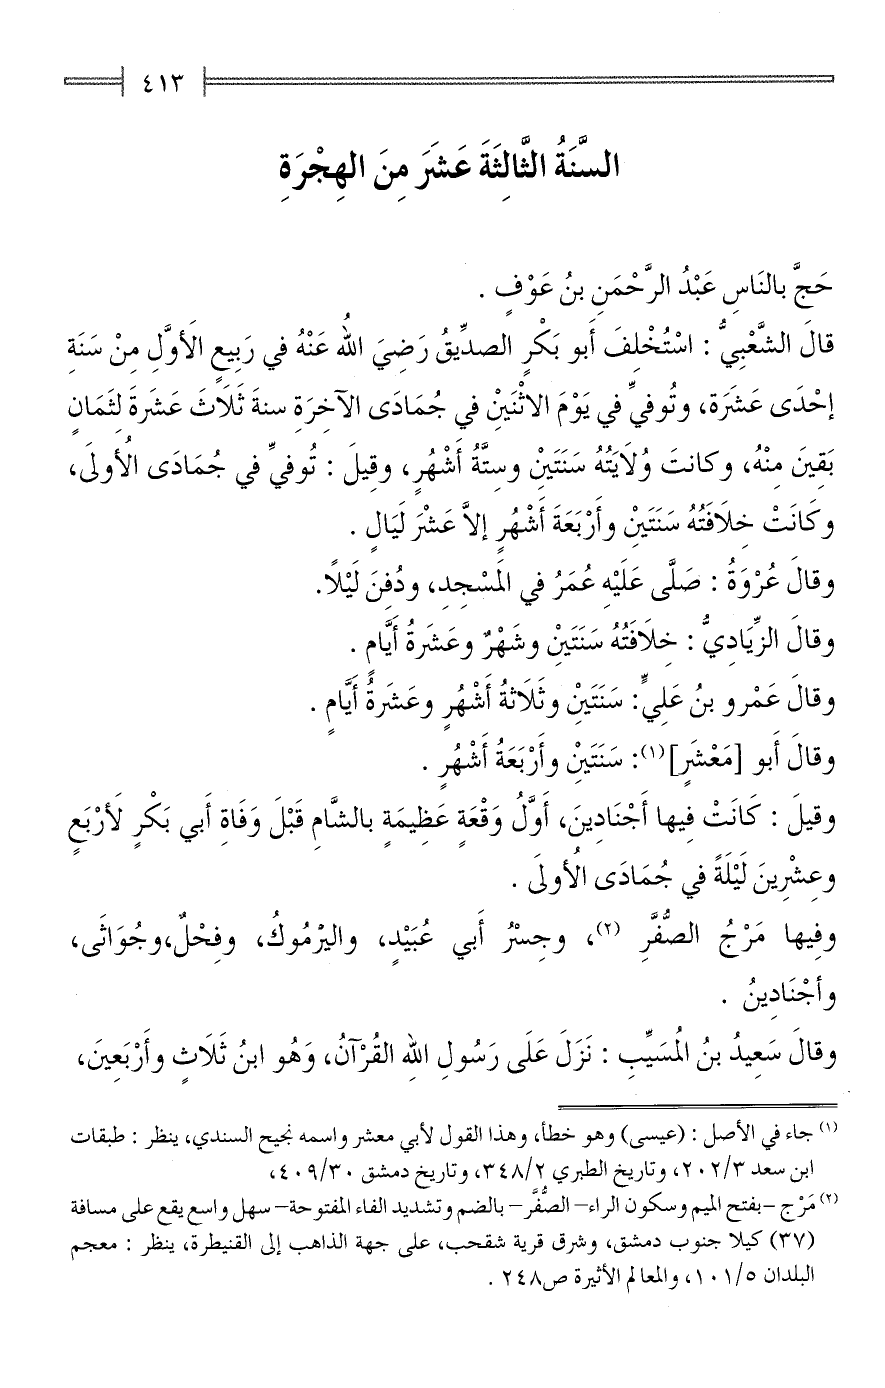 ٤١٣
السَّنَةُ الثَّالِثَةَ عَشَرَ مِنَ الهِجْرَةِ
حَجَّ بالنَاسِ عَبْدُ الرَّحْمَنِ بنُ عَوْفٍ .
قالَ الشَّعْبِيُّ : اسْتُخْلِفَ أبو بَكْرٍ الصدِّيقُ رَضِيَ اللهُ عَنْهُ في رَبِيعٍ الَأوَّلِ مِنْ سَنَةِ
إحْدَى عَشَرَة، وتُوفيِّ في يَوْمَ الاثْنَيْنِ في جُمَادَى الآخِرَةِ سنةَ ثَلَاثَ عَشَرةَ لثَمَانٍ
بَقِينَ مِنْهُ، وكانتَ وُلَايَتُهُ سَنَتَيْنِ وستَّةُ أَشْهُرٍ، وقِيلَ : تُوفيِّ في جُمَادَى الُأولَى،
وكَانَتْ خِلَافَتُهُ سَنَتَيْنِ وأَرْبَعَةَ أَشْهُرٍ إلاَّ عَشْرَ لَيَالٍ .
وقالَ عُرْوَةُ : صَلَّى عَلَيْهِ عُمَرُ في المَسْجِدِ، ودُفِنَ لَيْلًا.
وقالَ الزِّيَادِيُّ : خِلَافَتُهُ سَنَتَيْنِ وشَهْرٌ وعَشَرةُ أَيَّامٍ .
وقالَ عَمْرو بنُ عَليٍّ: سَنَتَيْنِ وثَلَاثةُ أَشْهُرٍ وعَشَرةُ أَيَّامٍ .
وقالَ أَبو [مَعْشَرٍ](١): سَنَتَيْنِ وأَرْبَعَةُ أَشْهُرٍ .
وقيلَ : كَانَتْ فِيها أَجْنَادِينَ، أَوَّلُ وَقْعَةٍ عَظِيمَةٍ بالشَّامِ قَبْلَ وَفَاةِ أَبي بَكْرٍ لَأرْبَعٍ
وعِشْرِينَ لَيْلَةً في جُمَادَى الُأولَى .
وفِيها مَرْجُ الصُّفَّرِ (٢)، وجِسْرُ أَبي عُبَيْدٍ، واليَرْمُوكُ، وفِحْلٌ،وجُوَاثَى،
وأجْنَادِينُ .
وقالَ سَعِيدُ بنُ المُسَيِّبِ : نَزَلَ عَلَى رَسُولِ اللهِ القُرْآنُ، وَهُو ابنُ ثَلَاثٍ وأَرْبَعِينَ،
(١) جاء في الأصل : (عيسى) وهو خطأ، وهذا القول لأبي معشر واسمه نجيح السندي، ينظر : طبقات
ابن سعد ٢٠٢/٣، وتاريخ الطبري ٣٤٨/٢، وتاريخ دمشق ٤٠٩/٣٠،
(٢) مَرْج -بفتح الميم وسكون الراء- الصُّفَّر- بالضم وتشديد الفاء المفتوحة- سهل واسع يقع على مسافة
(٣٧) كيلا جنوب دمشق، وشرق قرية شقحب، على جهة الذاهب إلى القنيطرة، ينظر : معجم
البلدان ١٠١/٥، والمعالم الأثيرة ص٢٤٨ .